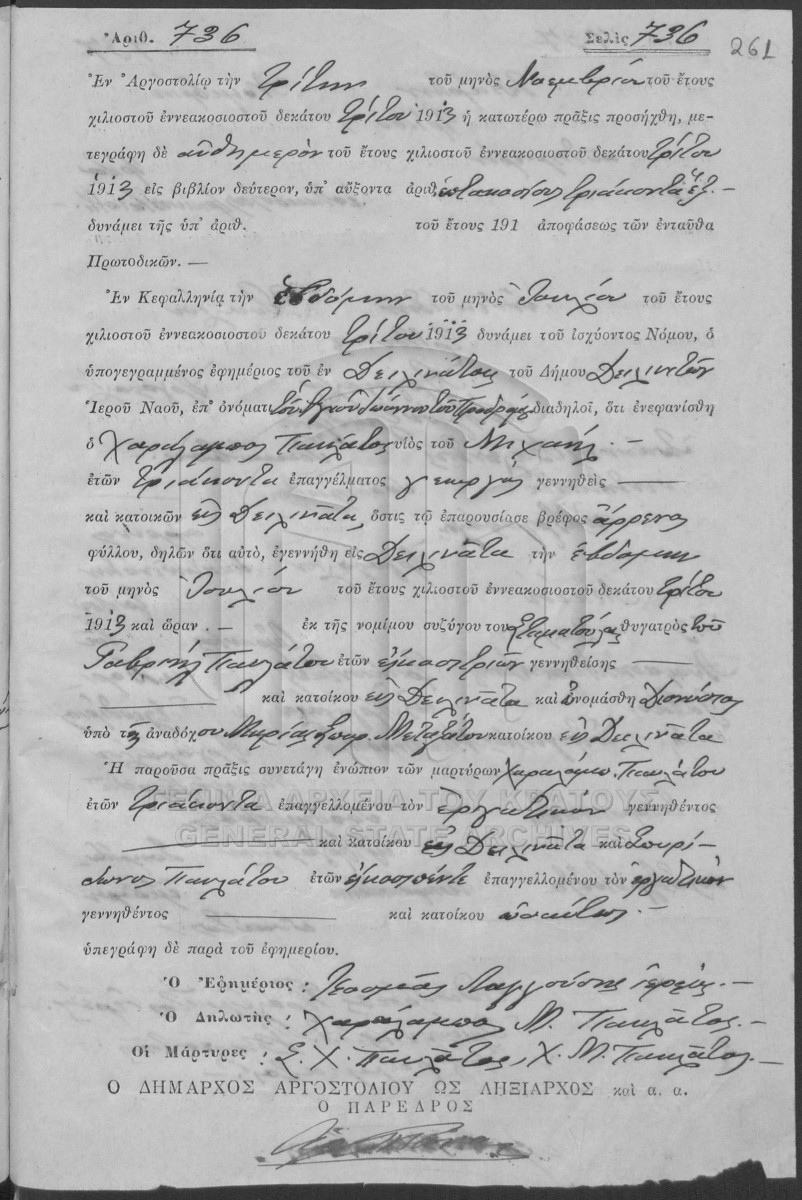 Ἀριθ. 736 Σελὶς 736 261
Ἐν Ἀργοστολίῳ τὴν τρίτην τοῦ μηνὸς Νοεμβρίου τοῦ ἔτους
χιλιοστοῦ ἐννεακοσιοστοῦ δεκάτου τρίτου 1913 ἡ κατωτέρω πρᾶξις προσήχθη, με-
τεγράφη δὲ αὐθημερὸν τοῦ ἔτους χιλιοστοῦ ἐννεακοσιοστοῦ δεκάτου τρίτου
1913 εἰς βιβλίον δεύτερον, ὑπ' αὔξοντα ἀριθ. ἑπτακοσίους τριάκοντα ἕξ.—
δυνάμει τῆς ὑπ' ἀριθ. τοῦ ἔτους 191 ἀποφάσεως τῶν ἐνταῦθα
Πρωτοδικῶν.—
Ἐν Κεφαλληνίᾳ τὴν ἑβδόμην τοῦ μηνὸς Ἰουλίου τοῦ ἔτους
χιλιοστοῦ ἐννεακοσιοστοῦ δεκάτου τρίτου 1913 δυνάμει τοῦ ἰσχύοντος Νόμου, ὁ
ὑπογεγραμμένος ἐφημέριος τοῦ ἐν Δειλινάτοις τοῦ Δήμου Δειλινατῶν
Ἱεροῦ Ναοῦ, ἐπ' ὀνόματι τοῦ Ἁγίου Ἰωάννου τοῦ Προδρόμου διαδηλοῖ, ὅτι ἐνεφανίσθη
ὁ Χαράλαμπος Παυλάτος υἱὸς τοῦ Μιχαήλ.—
ἐτῶν τριάκοντα ἐπαγγέλματος γεωργὸς γεννηθεὶς
καὶ κατοικῶν εἰς Δειλινᾶτα, ὅστις τῷ ἐπαρουσίασε βρέφος ἄρρενος
φύλλου, δηλῶν ὅτι αὐτὸ, ἐγεννήθη εἰς Δειλινᾶτα τὴν ἑβδόμην
τοῦ μηνὸς Ἰουλίου τοῦ ἔτους χιλιοστοῦ ἐννεακοσιοστοῦ δεκάτου τρίτου
1913 καὶ ὥραν .— ἐκ τῆς νομίμου συζύγου του Σταματούλας θυγατρὸς τοῦ
Γαβριὴλ Παυλάτου ἐτῶν εἰκοσιτριῶν γεννηθείσης
καὶ κατοίκου εἰς Δειλινᾶτα καὶ ὠνομάσθη Διονύσιος
ὑπὸ τῆς ἀναδόχου Μαρίας Σπυρ. Μεταξάτου κατοίκου εἰς Δειλινᾶτα
Ἡ παροῦσα πρᾶξις συνετάγη ἐνώπιον τῶν μαρτύρων Χαραλάμπ. Παυλάτου
ἐτῶν τριάκοντα ἐπαγγελλομένου τὸν ἐργατικὸν γεννηθέντος
καὶ κατοίκου εἰς Δειλινᾶτα καὶ Σπυρί-
δωνος Παυλάτου ἐτῶν εἰκοσιπέντε ἐπαγγελλομένου τὸν ἐργατικὸν
γεννηθέντος καὶ κατοίκου ὡσαύτως.—
ὑπεγράφη δὲ παρὰ τοῦ ἐφημερίου.
Ὁ Ἐφημέριος: Ἱερεύς.—
Ὁ Δηλωτής: Χαράλαμπος Μ. Παυλάτος.—
Οἱ Μάρτυρες: Σ. Χ. Παυλάτος, Χ. Μ. Παυλάτος.—
Ο ΔΗΜΑΡΧΟΣ ΑΡΓΟΣΤΟΛΙΟΥ ΩΣ ΛΗΞΙΑΡΧΟΣ καὶ α. α.
Ο ΠΑΡΕΔΡΟΣ
ΓΕΝΙΚΑ ΑΡΧΕΙΑ ΤΟΥ ΚΡΑΤΟΥΣ
GENERAL STATE ARCHIVES